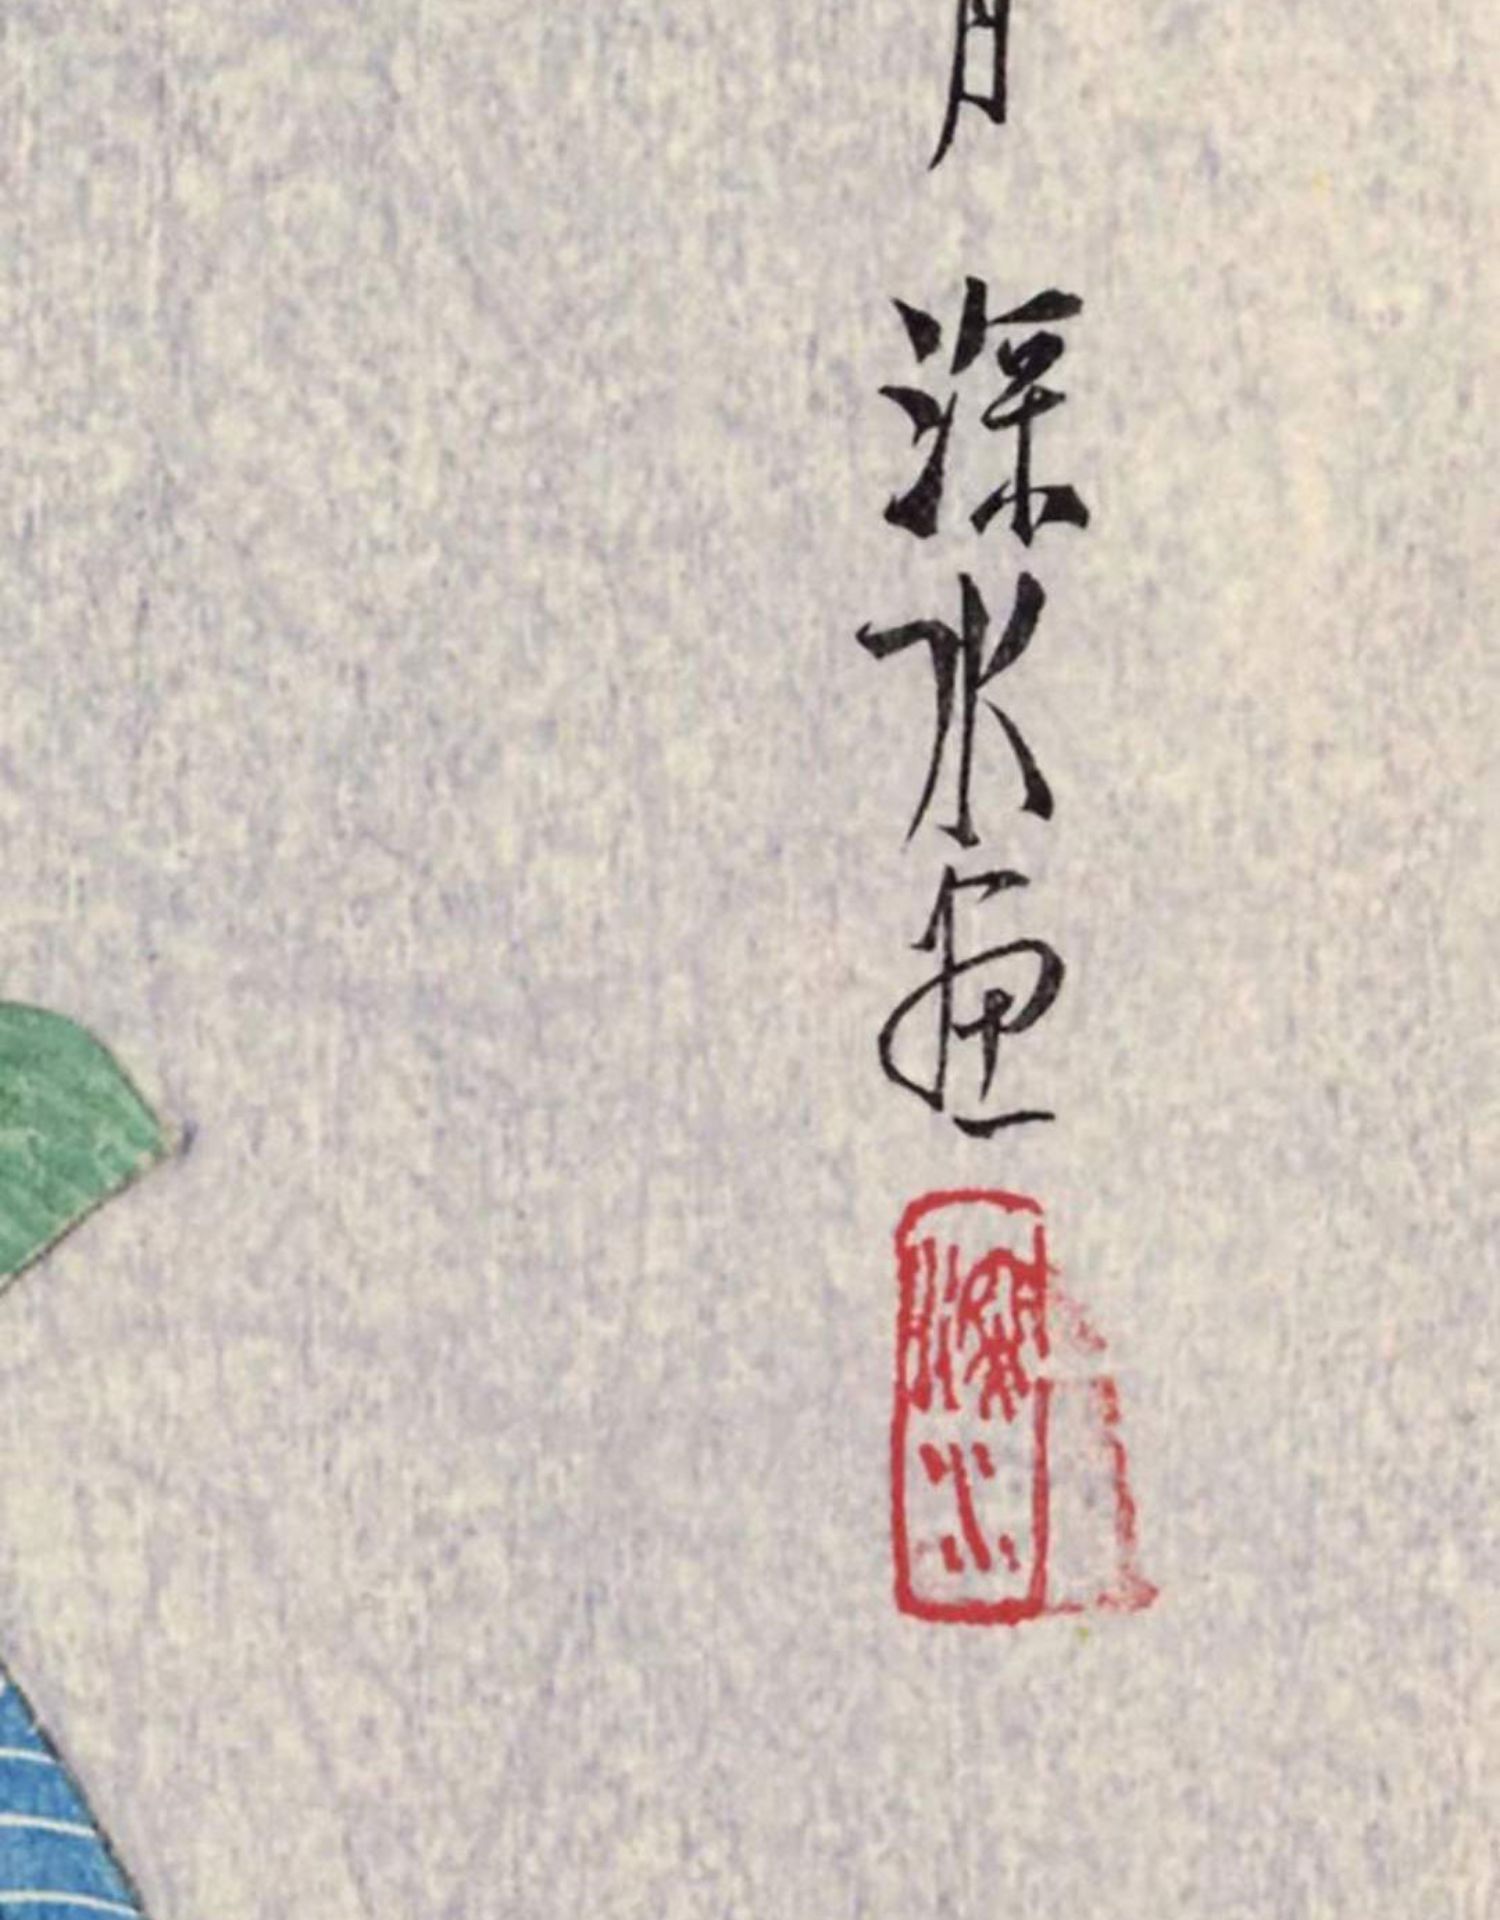 月
深水画
深水